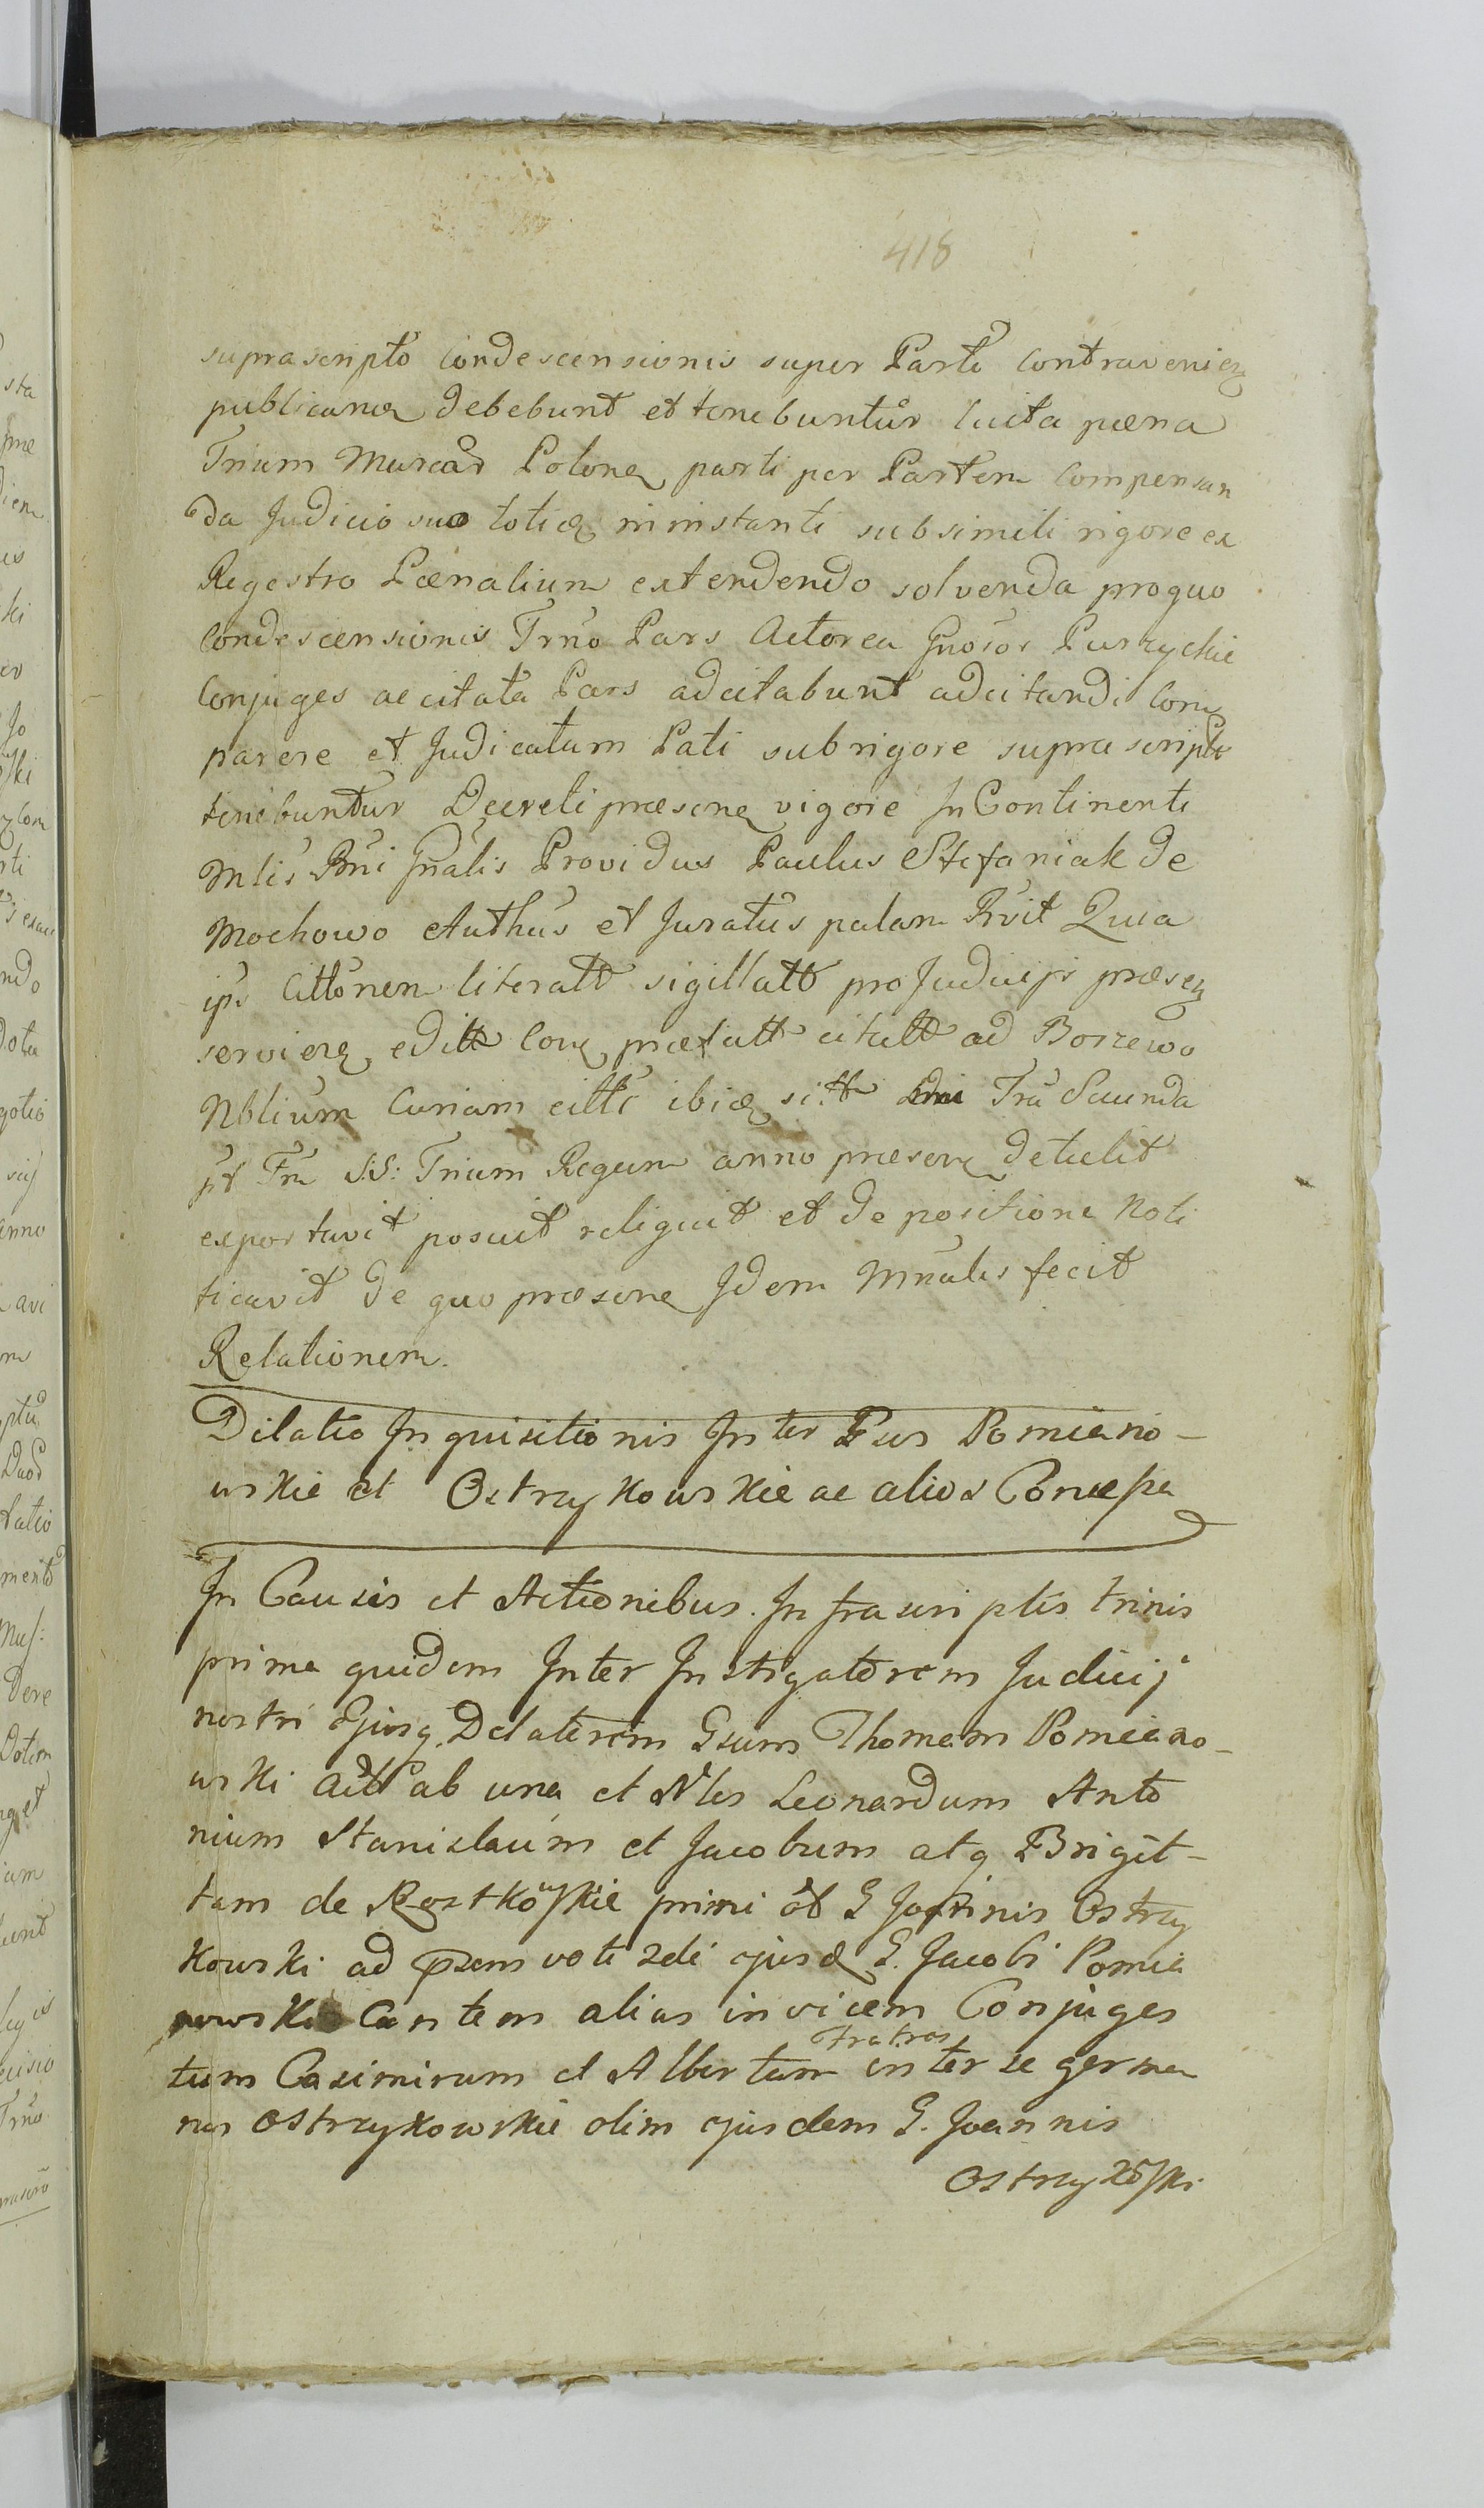 418
suprascripto Condescensionis super Parte Contravenien
publicanda debebunt et tenebuntur luita pœna
Trium Marcar Polon parti per Partem Compensan
da Judicio suo toties in instanti sub simili rigore ex
Regestro Pœnalium extendendo solvenda pro quo
Condescensionis Trno Pars Actorea Gnosos Purzyckie
Conjuges ac citata Pars adcitabunt adcitandi Com
parere et Judicatum Pati sub rigore supra scripto
tenebuntur Decreti præsen vigore In Continenti
Mlis Rni Gnalis Providus Paulus Stefaniak de
Mochowo Authus et Juratus palam Rvit Quia
ips Cittonem literatt sigillatt pro Judicijs præsen
servien editt Con præfatt citatt ad Borzewo
Nblium Curiam citti ibiq sitt Tra Secunda
pt Fm S:S: Trium Regum anno præsen detulit
exportavit posuit reliquit et de positione Noti
ficavit de quo præsen Idem Mnalis fecit
Relationem.
Dilatio Inquisitionis Inter Pomiano-
wskie et Ostrzykowskie ac alios Concepa
In Causis et Actionibus Infrascriptis trinis
prima quidem Inter Instigatorem Judicij
nostri Ejusq Delatorem Gsum Thomam Pomiano-
wski Actt ab una et Nles Leonardum Anto
nium Stanislaum et Jacobum atq Brigit-
tam de Rostkoskie primi ot G Joannis Ostrzy
kowski ad psens voti 2di ejusd G. Jacobi Pomia
nowski Cantem alias invicem Conjuges
tum Casimirum et Albertum Fratres inter se germa
nos Ostrzykowskie olim ejusdem G. Joannis
Ostrzykoski